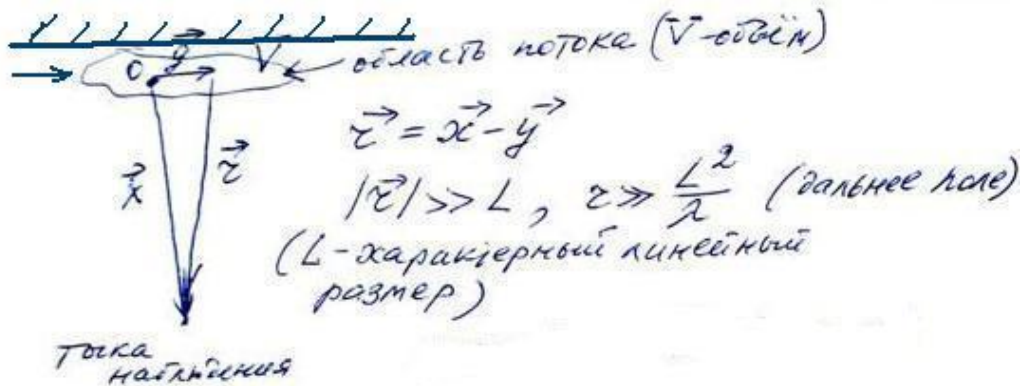 y⃗
V
O
область потока (V-объём)
r⃗ = x⃗ - y⃗
x⃗
r⃗
|r⃗| >> L , r >> L²/λ (дальнее поле)
(L-характерный линейный
размер)
точка
наблюдения